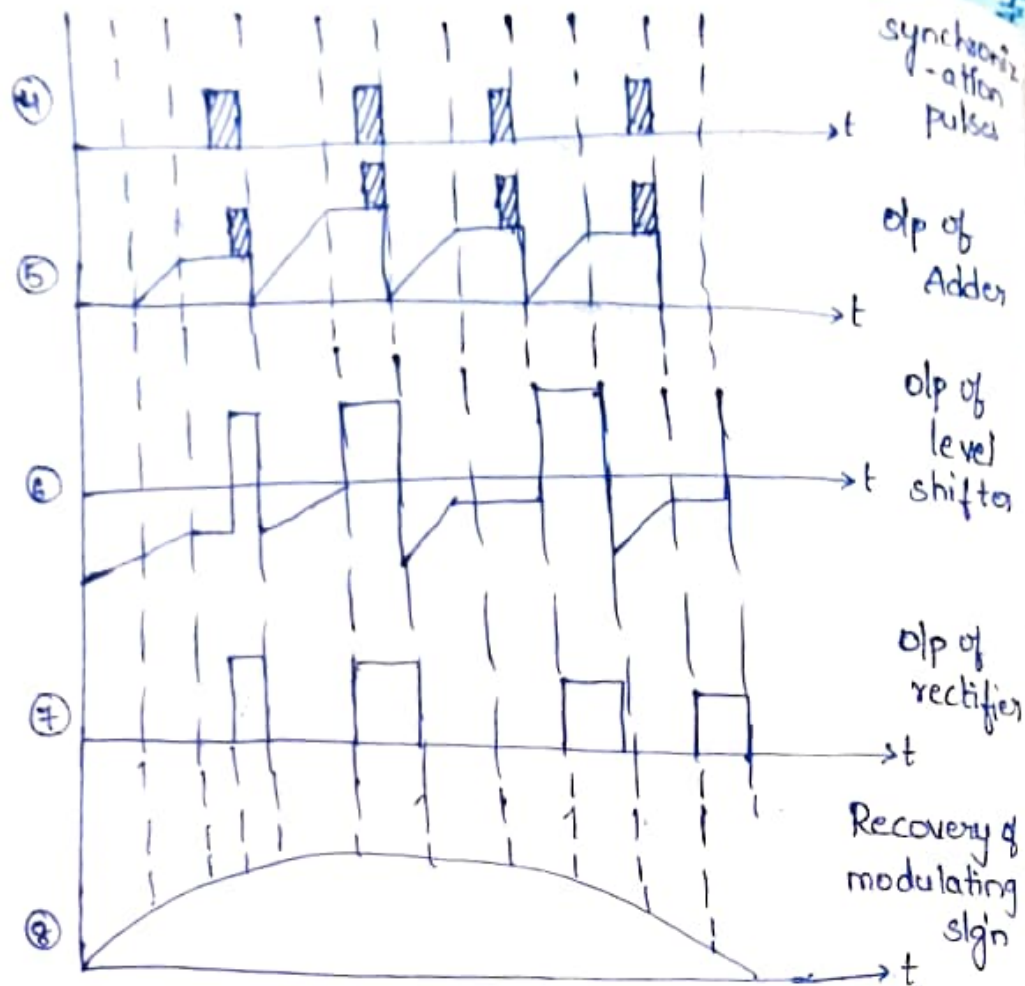 synchroniz
-ation
pulses
④
t
o/p of
Adder
⑤
t
o/p of
level
shifter
⑥
t
o/p of
rectifier
⑦
t
Recovery of
modulating
sign
⑧
t